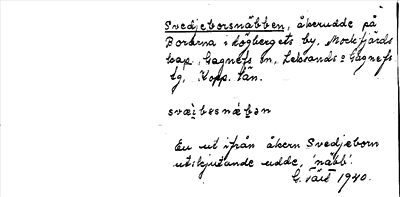 Svedjeborsnäbben, åkerudde på
Borarna i Högbergets by, Mockfjärds
kap., Gagnefs sn, Leksands o Gagnefs
tg, Kopp. län.
svæ̀ibesnæ̀bən
En ut ifrån åkern Svedjeborn
utskjutande udde, 'näbb'.
G. 1940.